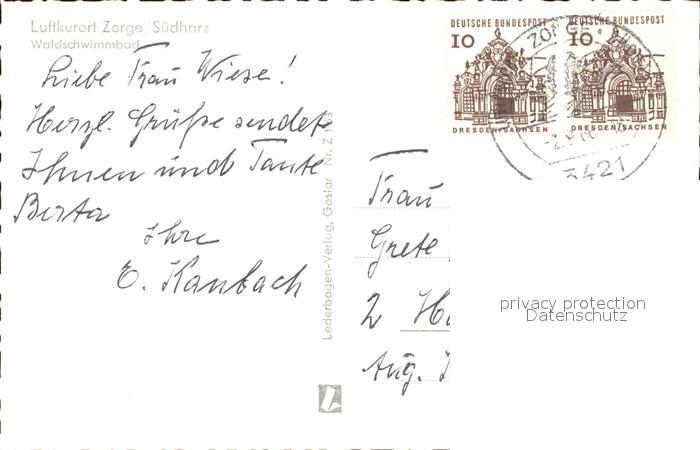 Luftkurort Zorge/Südharz
Waldschwimmbad
Liebe Frau Wiese!
Herzl. Grüße sendet
Ihnen und Tante
Berta
Ihre
E. Kaubach
Lederbogen-Verlag, Goslar Nr. Z
DEUTSCHE BUNDESPOST
10
DRESDEN/SACHSEN
DEUTSCHE BUNDESPOST
10
DRESDEN/SACHSEN
ZORGE
3421
Frau
Grete
2
Aug.
privacy protection
Datenschutz